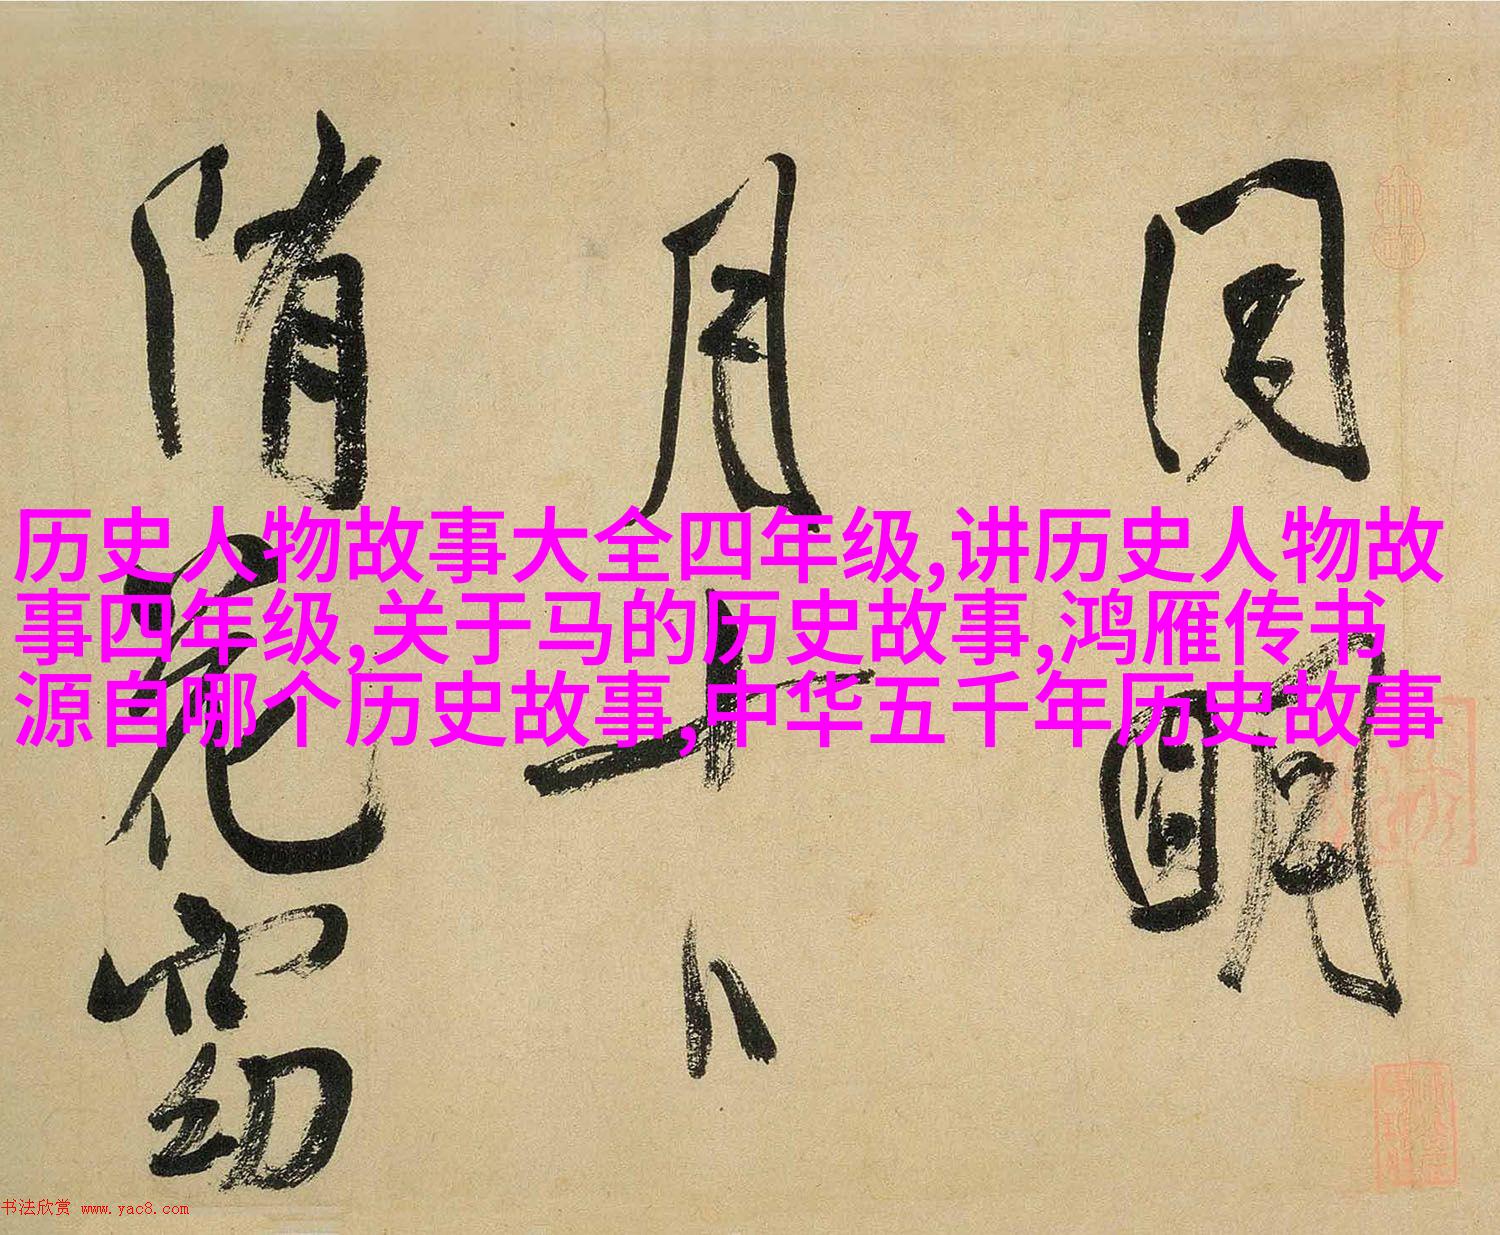 历史人物故事大全四年级,讲历史人物故
事四年级,关于马的历史故事,鸿雁传书
源自哪个历史故事,中华五千年历史故事
明
月十八
随花窈
书法欣赏 www.yac8.com